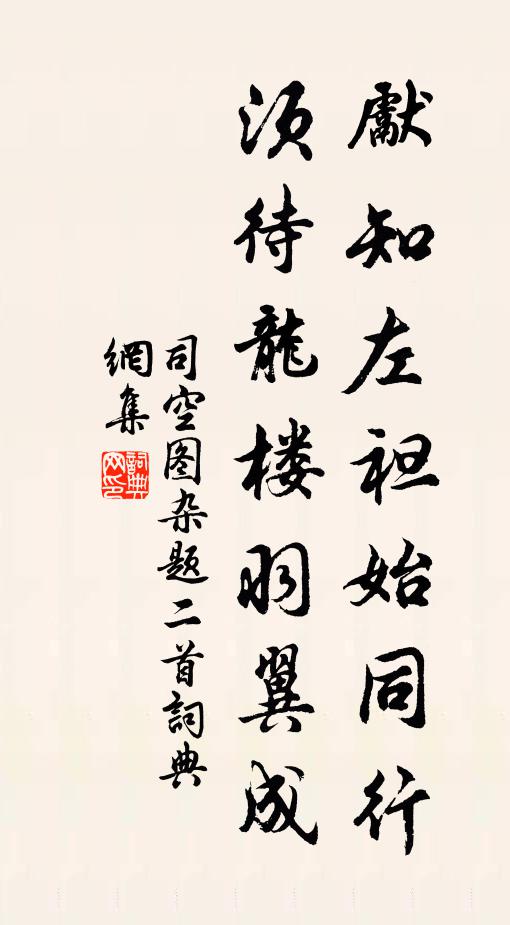 獻知左袒始同行
须待龍楼羽翼成
司空图杂题二首詞典
網集
詞典
网印